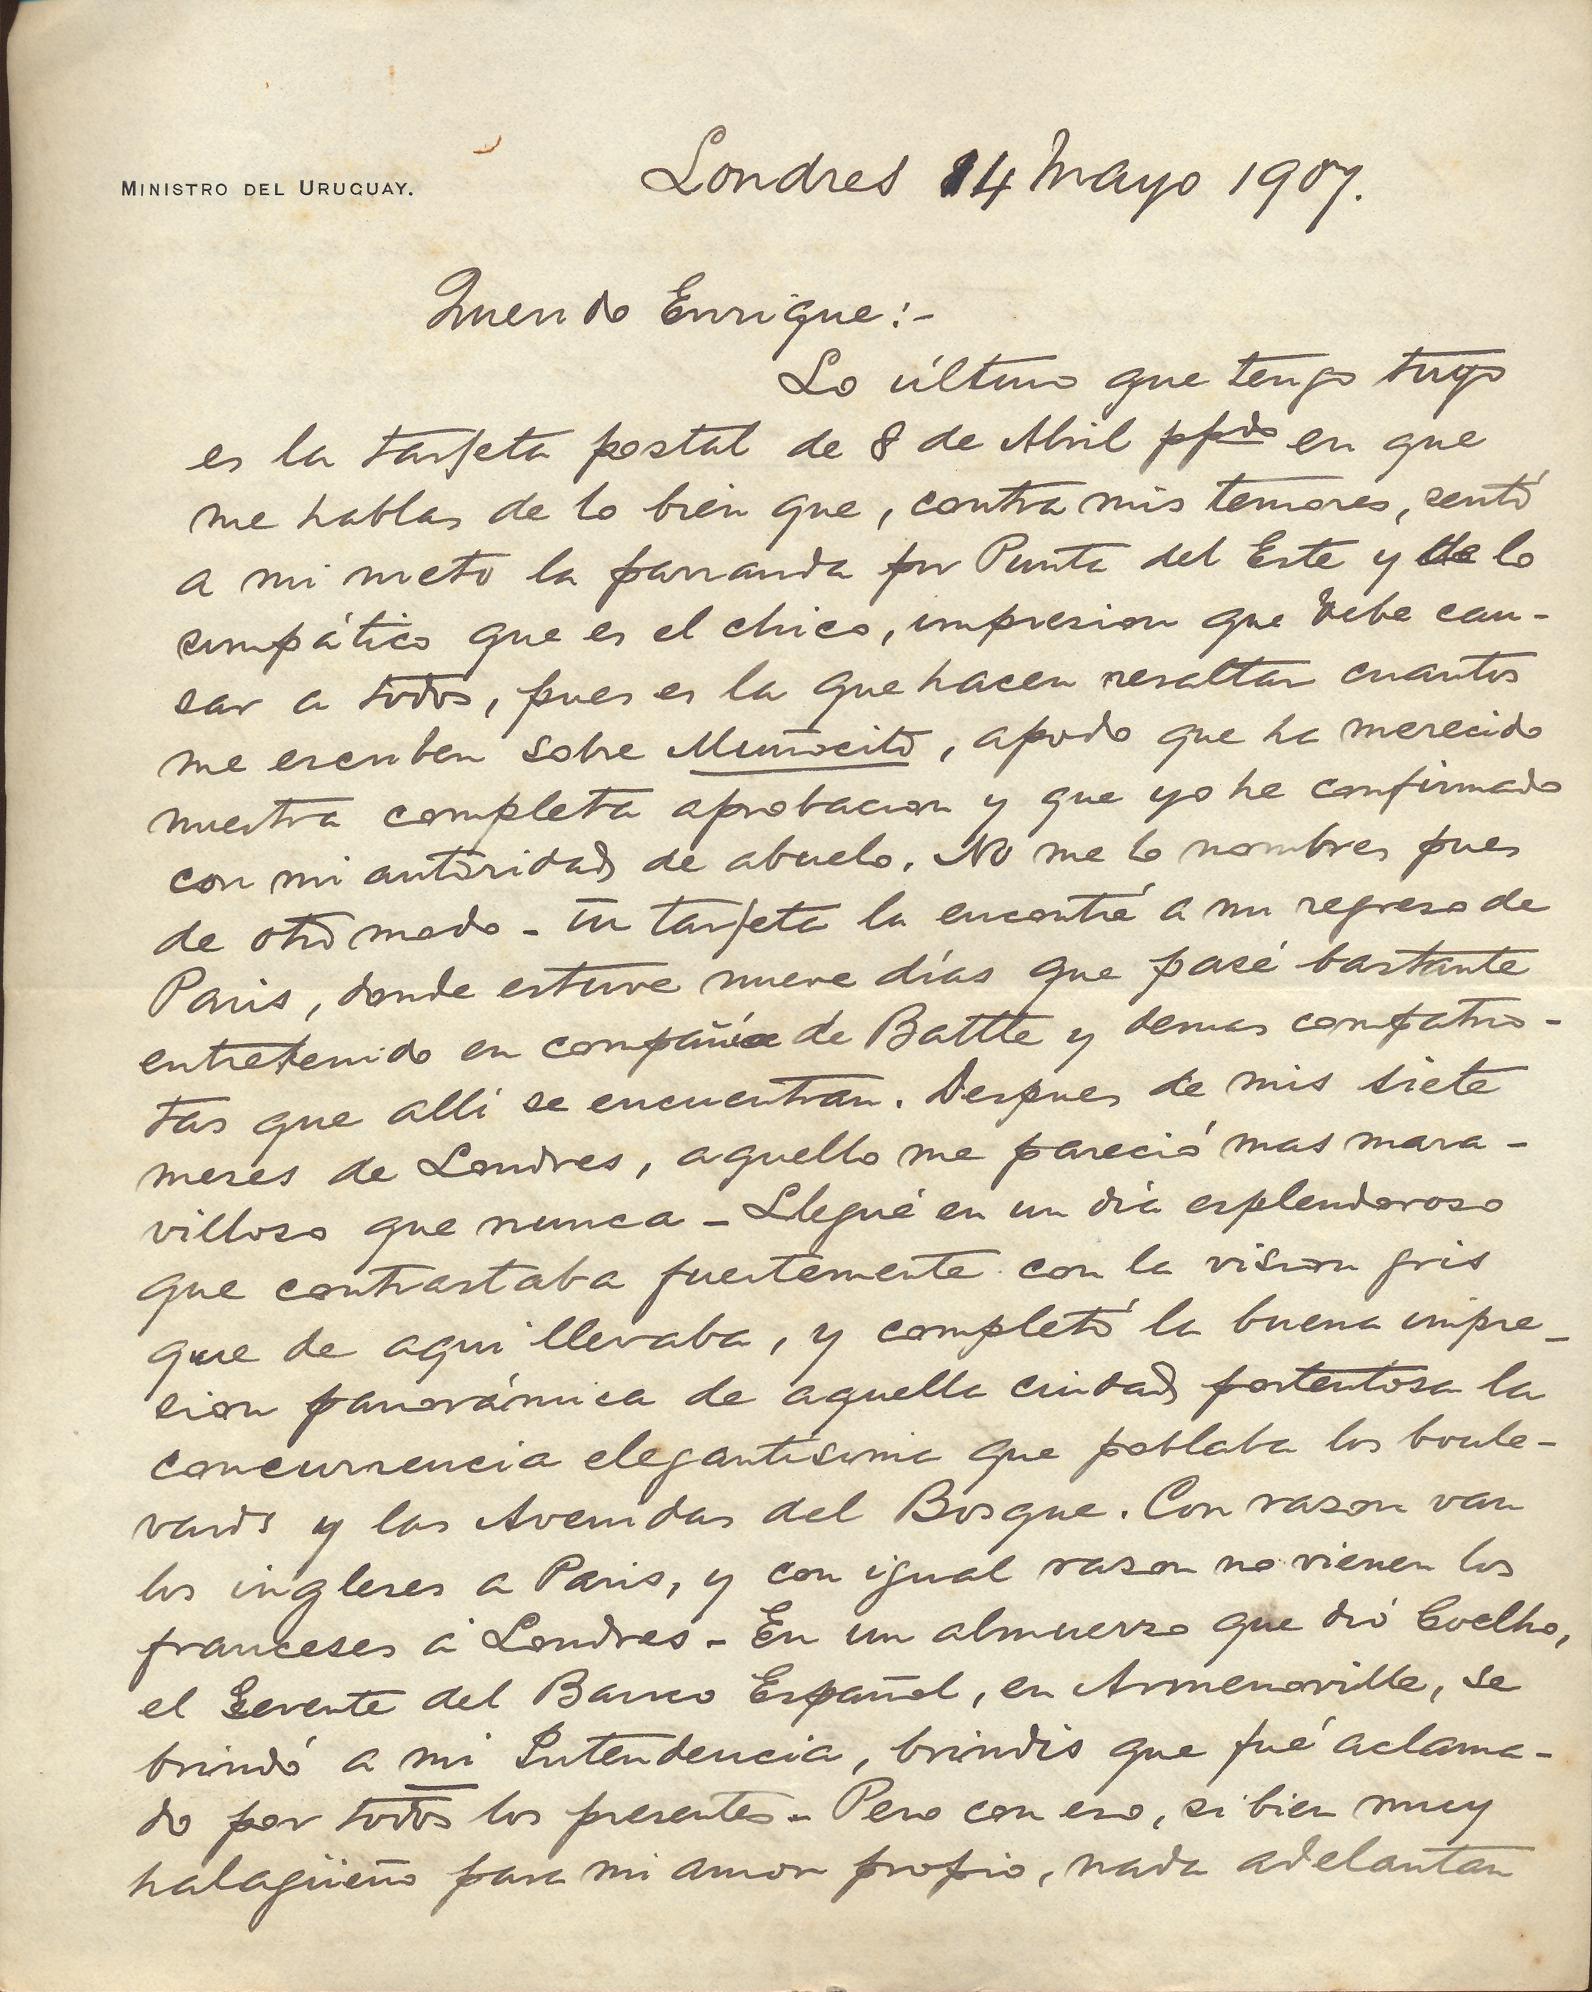 MINISTRO DEL URUGUAY.
Londres 14 Mayo 1907.
Querido Enrique:-
Lo último que tengo tuyo
es la tarjeta postal de 8 de Abril ppdo en que
me hablas de lo bien que, contra mis temores, sentó
a mi nieto la parranda por Punta del Este y lo
simpático que es el chico, impresion que debe cau-
sar a todos, pues es la que hacen resaltar cuantos
me escriben sobre Muñocito, apodo que ha merecido
nuestra completa aprobacion y que yo he confirmado
con mi autoridad de abuelo. No me lo nombres pues
de otro modo - Tu tarjeta la encontré a mi regreso de
Paris, donde estuve nueve días que pasé bastante
entretenido en compañia de Batlle y demas compatrio-
tas que allí se encuentran. Despues de mis siete
meses de Londres, aquello me pareció mas mara-
villoso que nunca - Llegué en un dia esplendoroso
que contrastaba fuertemente con la vision gris
que de aqui llevaba, y completó la buena impre-
sion panorámica de aquella ciudad portentosa la
concurrencia elegantísima que poblaba los boule-
vards y las Avenidas del Bosque. Con razon van
los ingleses a Paris, y con igual razon no vienen los
franceses á Londres - En un almuerzo que dió Coelho,
el Gerente del Banco Español, en Armenonville, se
brindó a mi Intendencia, brindis que fué aclama-
do por todos los presentes - Pero con eso, si bien muy
halagüeño para mi amor propio, nada adelantan